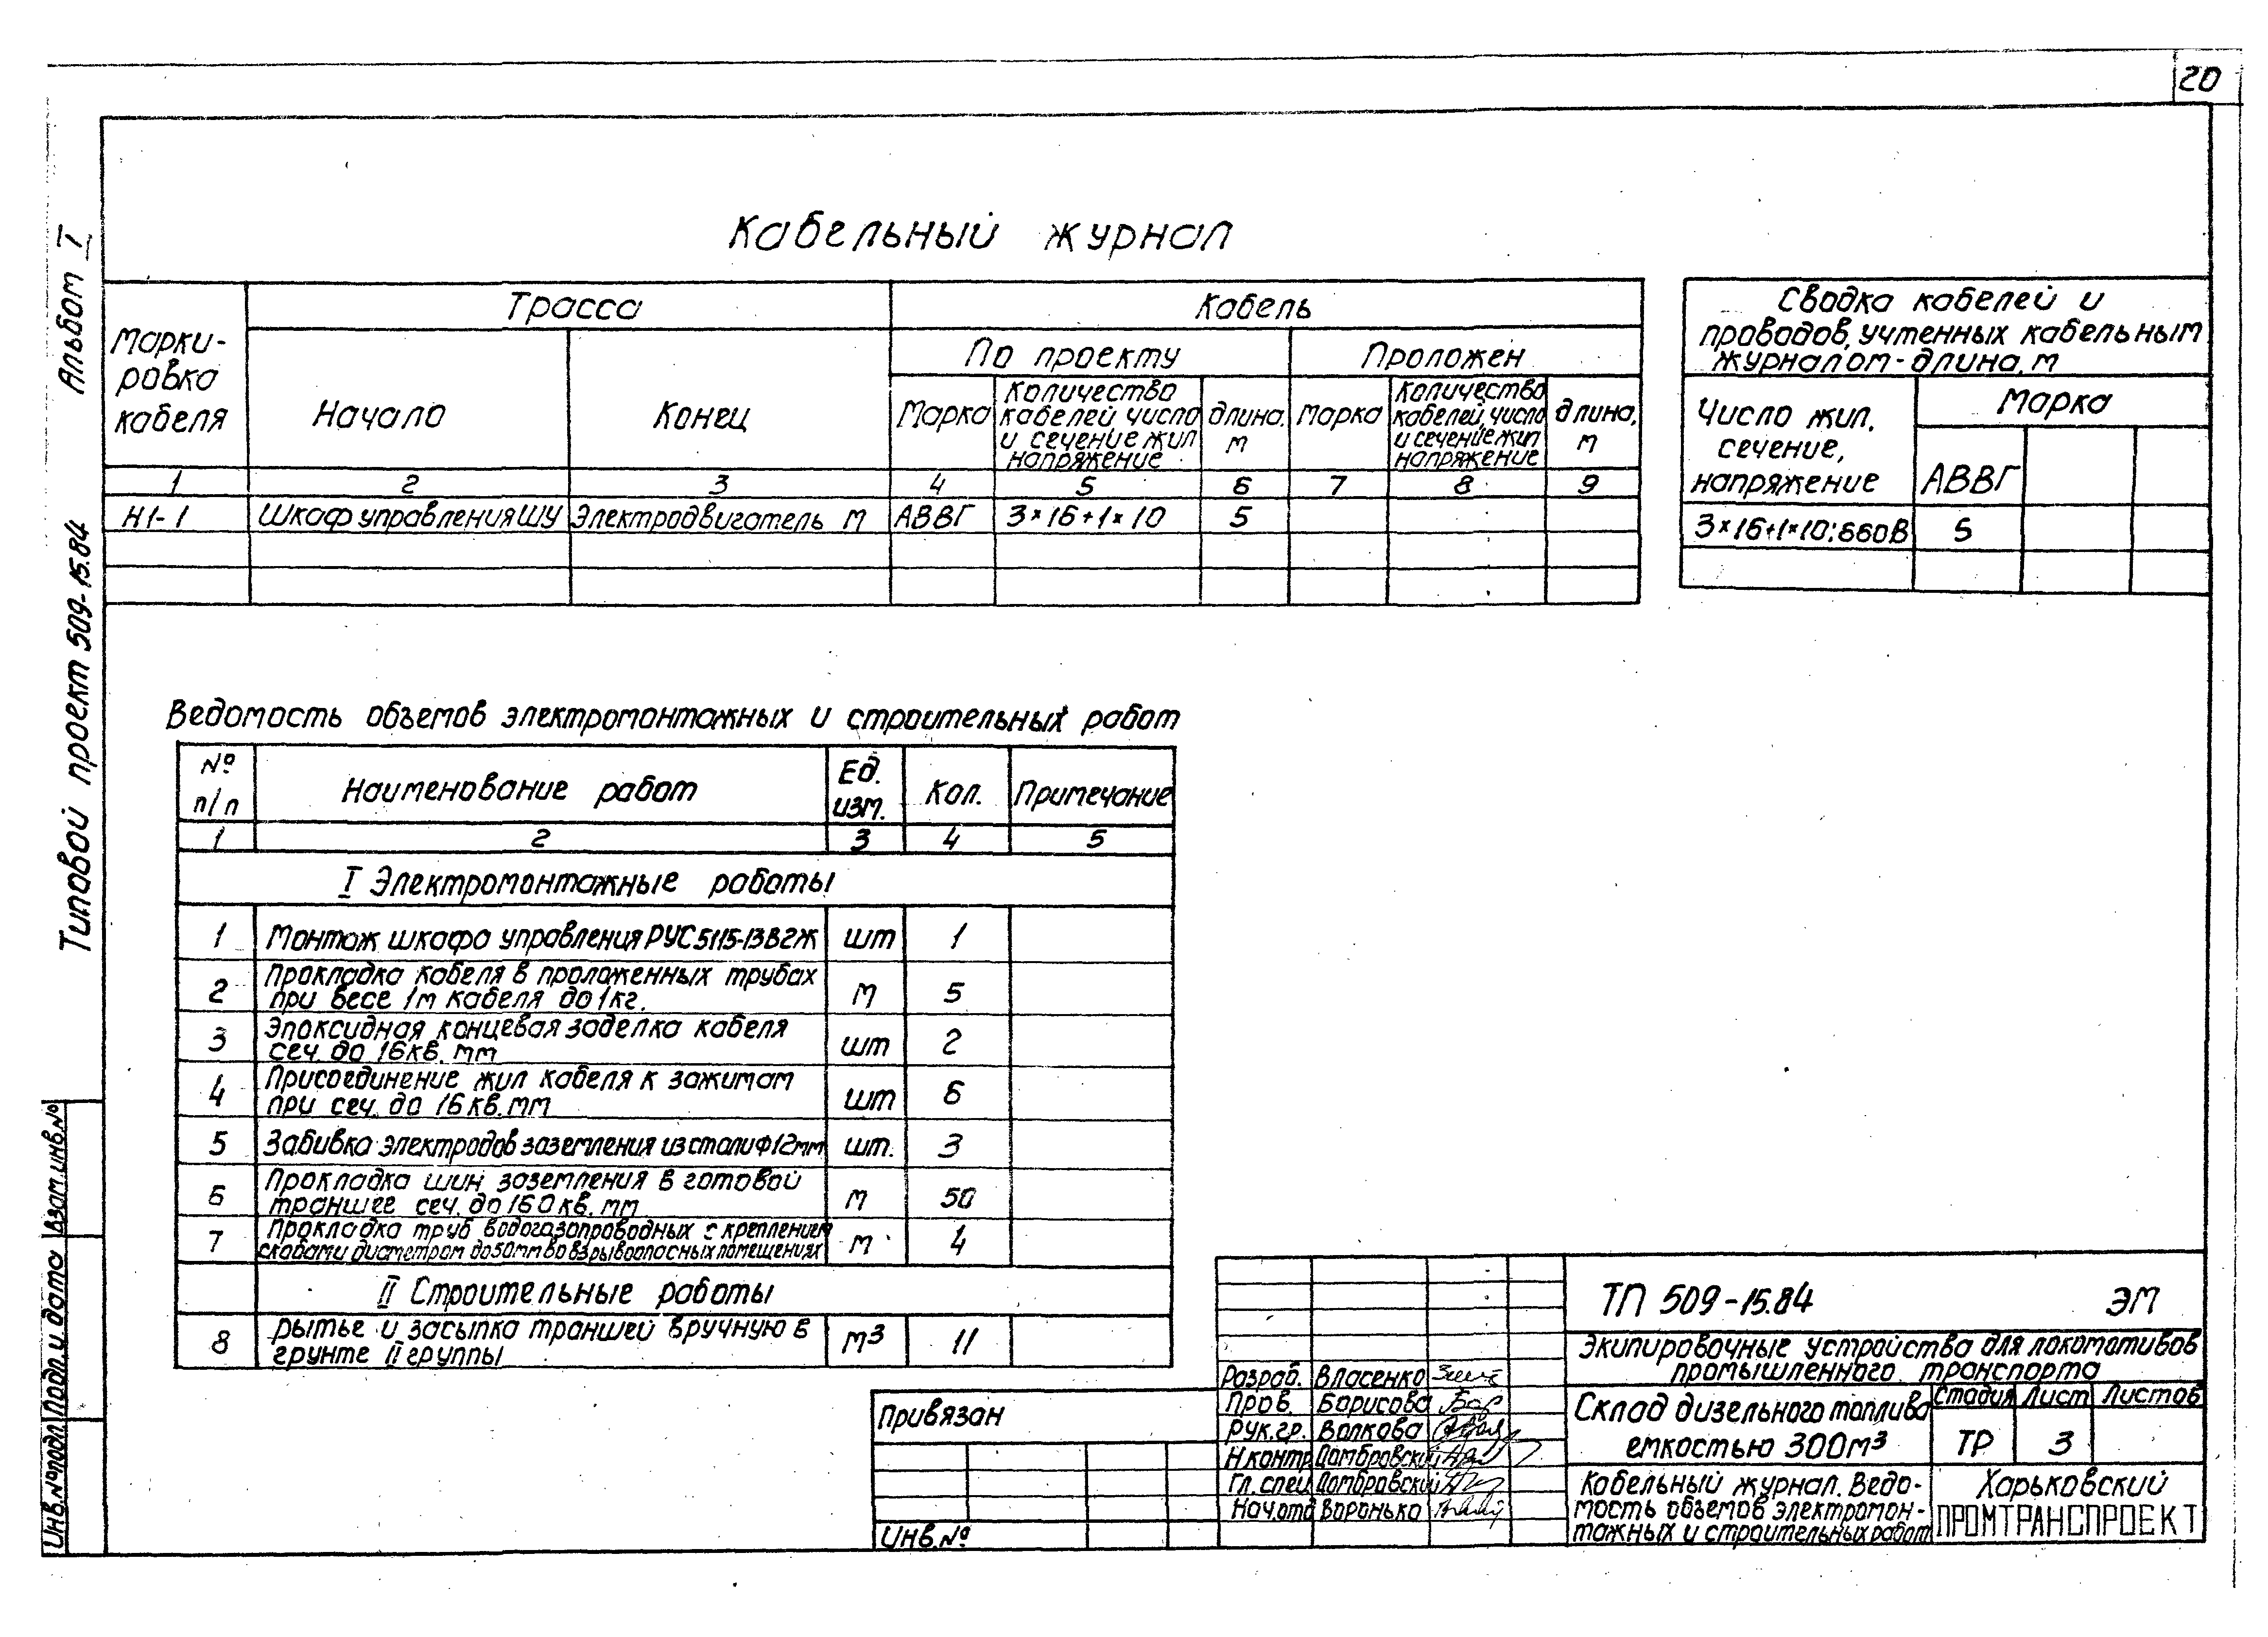 20
Альбом I
Типовой проект 509-15.84
Кабельный журнал
Марки-
ровка
кабеля
Трасса
Кабель
По проекту
Проложен
Начало
Конец
Марка
Количество
кабелей число
и сечение жил
напряжение
длина,
м
Марка
Количество
кабелей, число
и сечение жил
напряжение
длина,
м
1 2 3 4 5 6 7 8 9
Н1-1 Шкаф управления ШУ Электродвигатель М АВВГ 3×16+1×10 5
Сводка кабелей и
проводов, учтенных кабельным
журналом - длина, м
Число жил,
сечение,
напряжение
Марка
АВВГ
3×16+1×10; 660В 5
Ведомость объемов электромонтажных и строительных работ
№
п/п
Наименование работ
Ед.
изм.
Кол.
Примечание
1 2 3 4 5
I Электромонтажные работы
1 Монтаж шкафа управления РУС5115-13В2Ж шт 1
2 Прокладка кабеля в проложенных трубах
при весе 1м кабеля до 1кг. м 5
3 Эпоксидная концевая заделка кабеля
сеч. до 16кв. мм шт 2
4 Присоединение жил кабеля к зажимам
при сеч. до 16кв. мм шт 6
5 Забивка электродов заземления из стали Ф12мм шт. 3
6 Прокладка шин заземления в готовой
траншее сеч. до 160кв. мм м 50
7 Прокладка труб водогазопроводных с креплением
скобами диаметром до 50мм во взрывоопасных помещениях м 4
II Строительные работы
8 рытье и засыпка траншей вручную в
грунте II группы м3 11
Привязан
Инв.№
Разраб. Власенко
Пров. Барисова
Рук.гр. Волкова
Н контр. Домбровский
Гл. спец. Домбровский
Нач.отд Воронько
ТП 509-15.84 ЭМ
Экипировочные устройства для локомотивов
промышленного транспорта
Склад дизельного топлива
емкостью 300м3
Стадия Лист Листов
ТР 3
Кабельный журнал. Ведо-
мость объемов электромон-
тажных и строительных работ
Харьковский
ПРОМТРАНСПРОЕКТ
Взам.инв.№
Подп. и дата
Инв.№подл